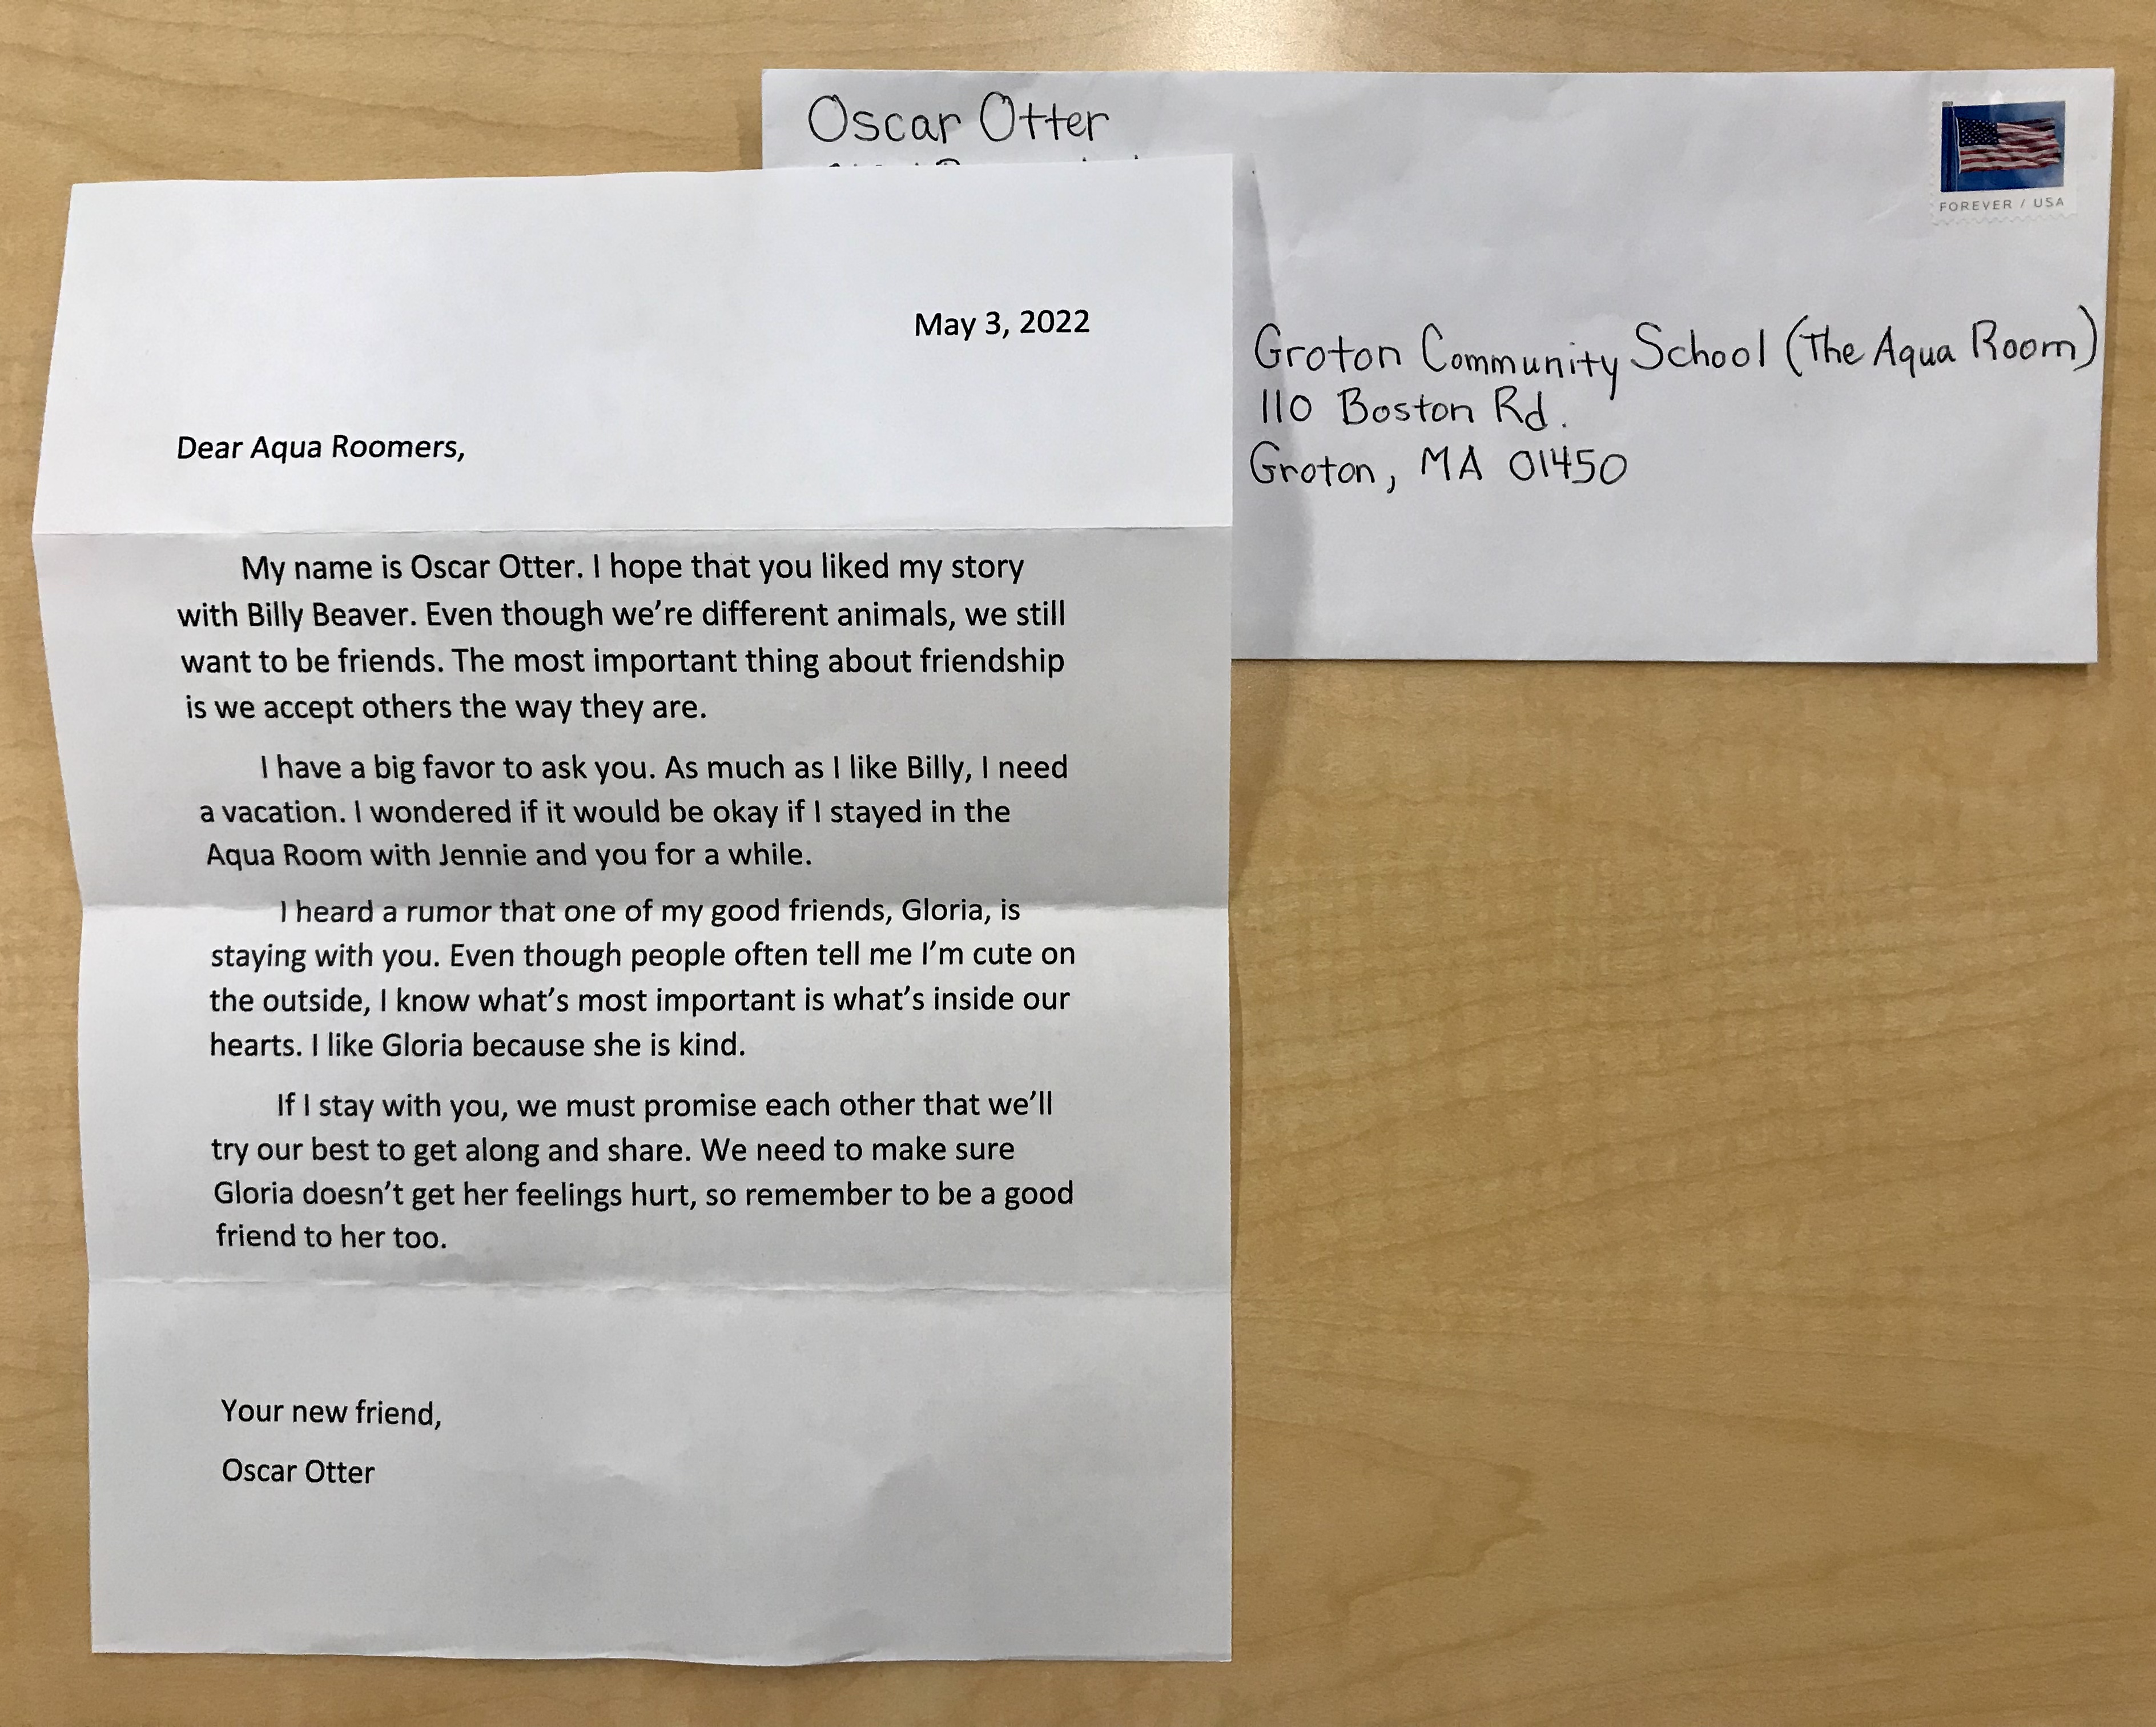 Oscar Otter
FOREVER / USA
Groton Community School (The Aqua Room)
110 Boston Rd.
Groton, MA 01450
May 3, 2022
Dear Aqua Roomers,
My name is Oscar Otter. I hope that you liked my story
with Billy Beaver. Even though we’re different animals, we still
want to be friends. The most important thing about friendship
is we accept others the way they are.
I have a big favor to ask you. As much as I like Billy, I need
a vacation. I wondered if it would be okay if I stayed in the
Aqua Room with Jennie and you for a while.
I heard a rumor that one of my good friends, Gloria, is
staying with you. Even though people often tell me I’m cute on
the outside, I know what’s most important is what’s inside our
hearts. I like Gloria because she is kind.
If I stay with you, we must promise each other that we’ll
try our best to get along and share. We need to make sure
Gloria doesn’t get her feelings hurt, so remember to be a good
friend to her too.
Your new friend,
Oscar Otter